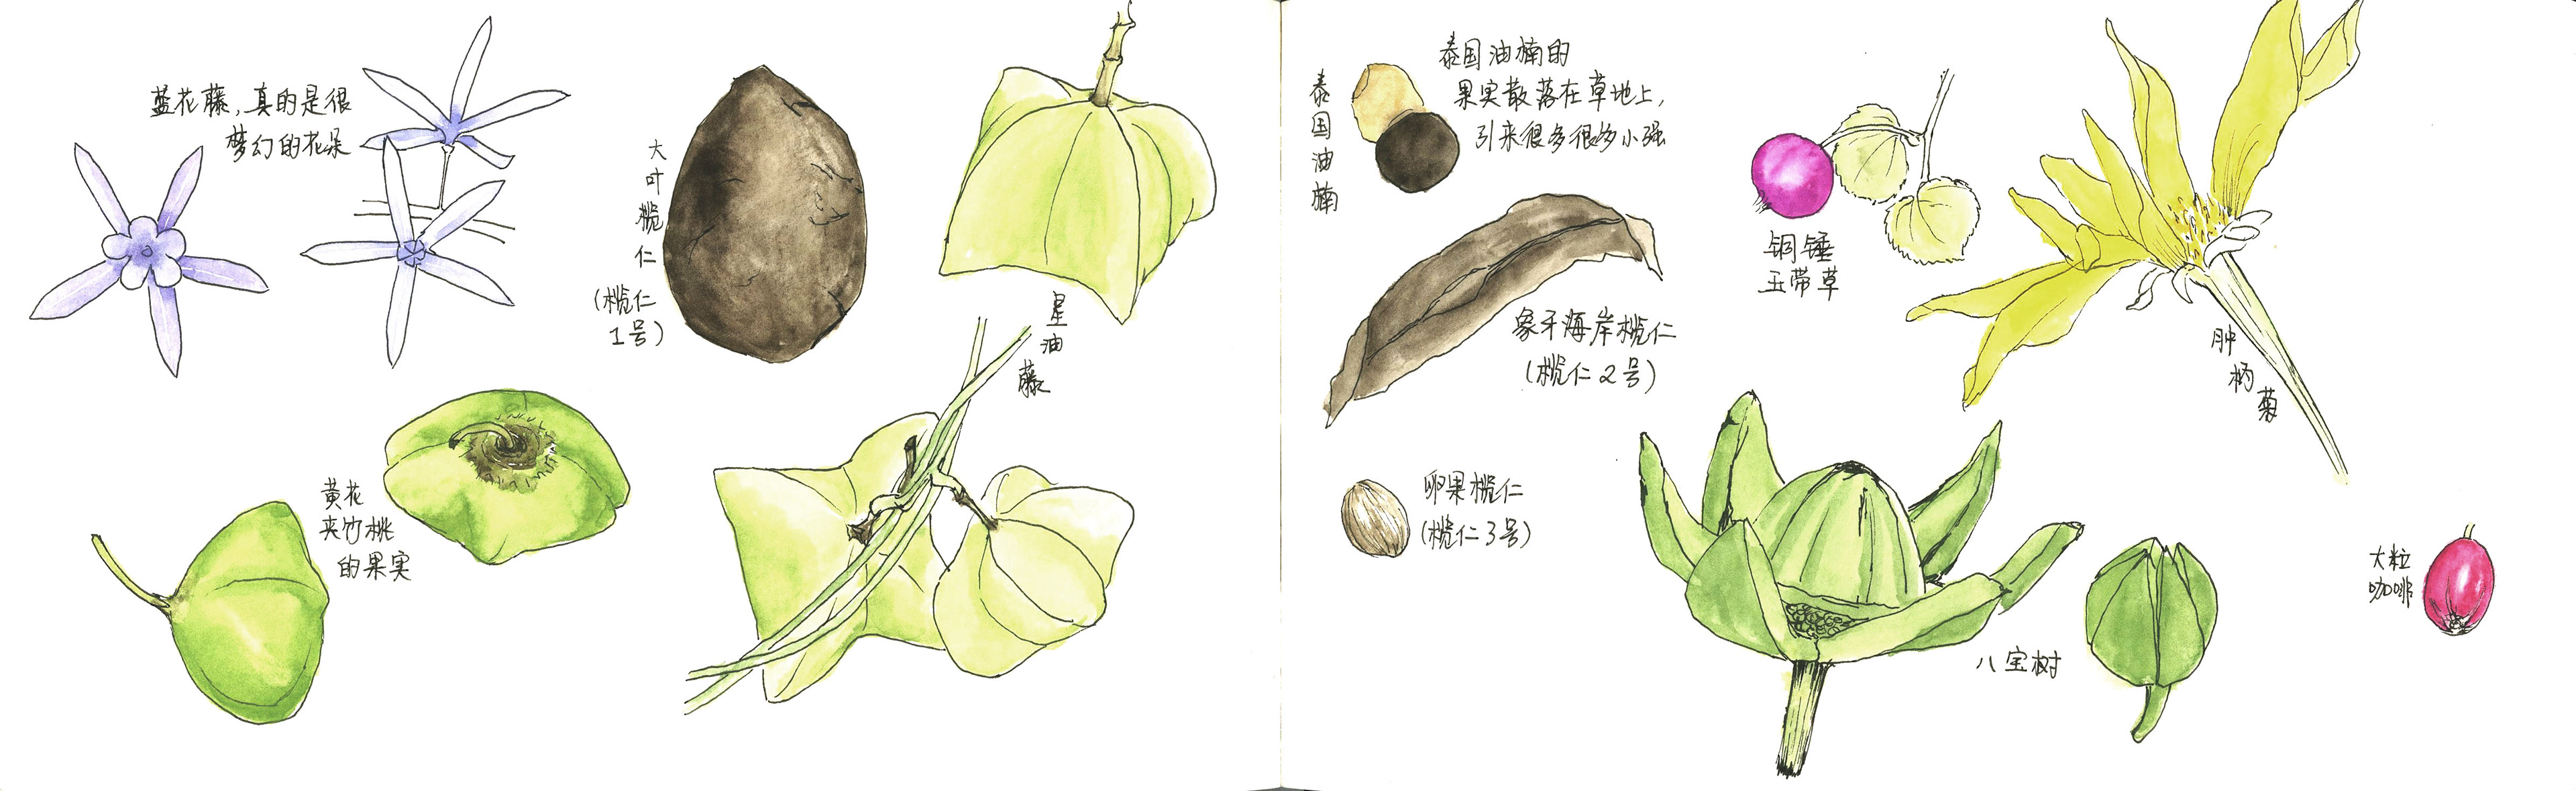 蓝花藤,真的是很
梦幻的花朵
大叶榄仁
(榄仁
1号)
星油藤
黄花
夹竹桃
的果实
泰国油楠
泰国油楠的
果实散落在草地上,
引来很多很多小强
象牙海岸榄仁
(榄仁2号)
卵果榄仁
(榄仁3号)
铜锤
玉带草
肿柄菊
八宝树
大粒
咖啡